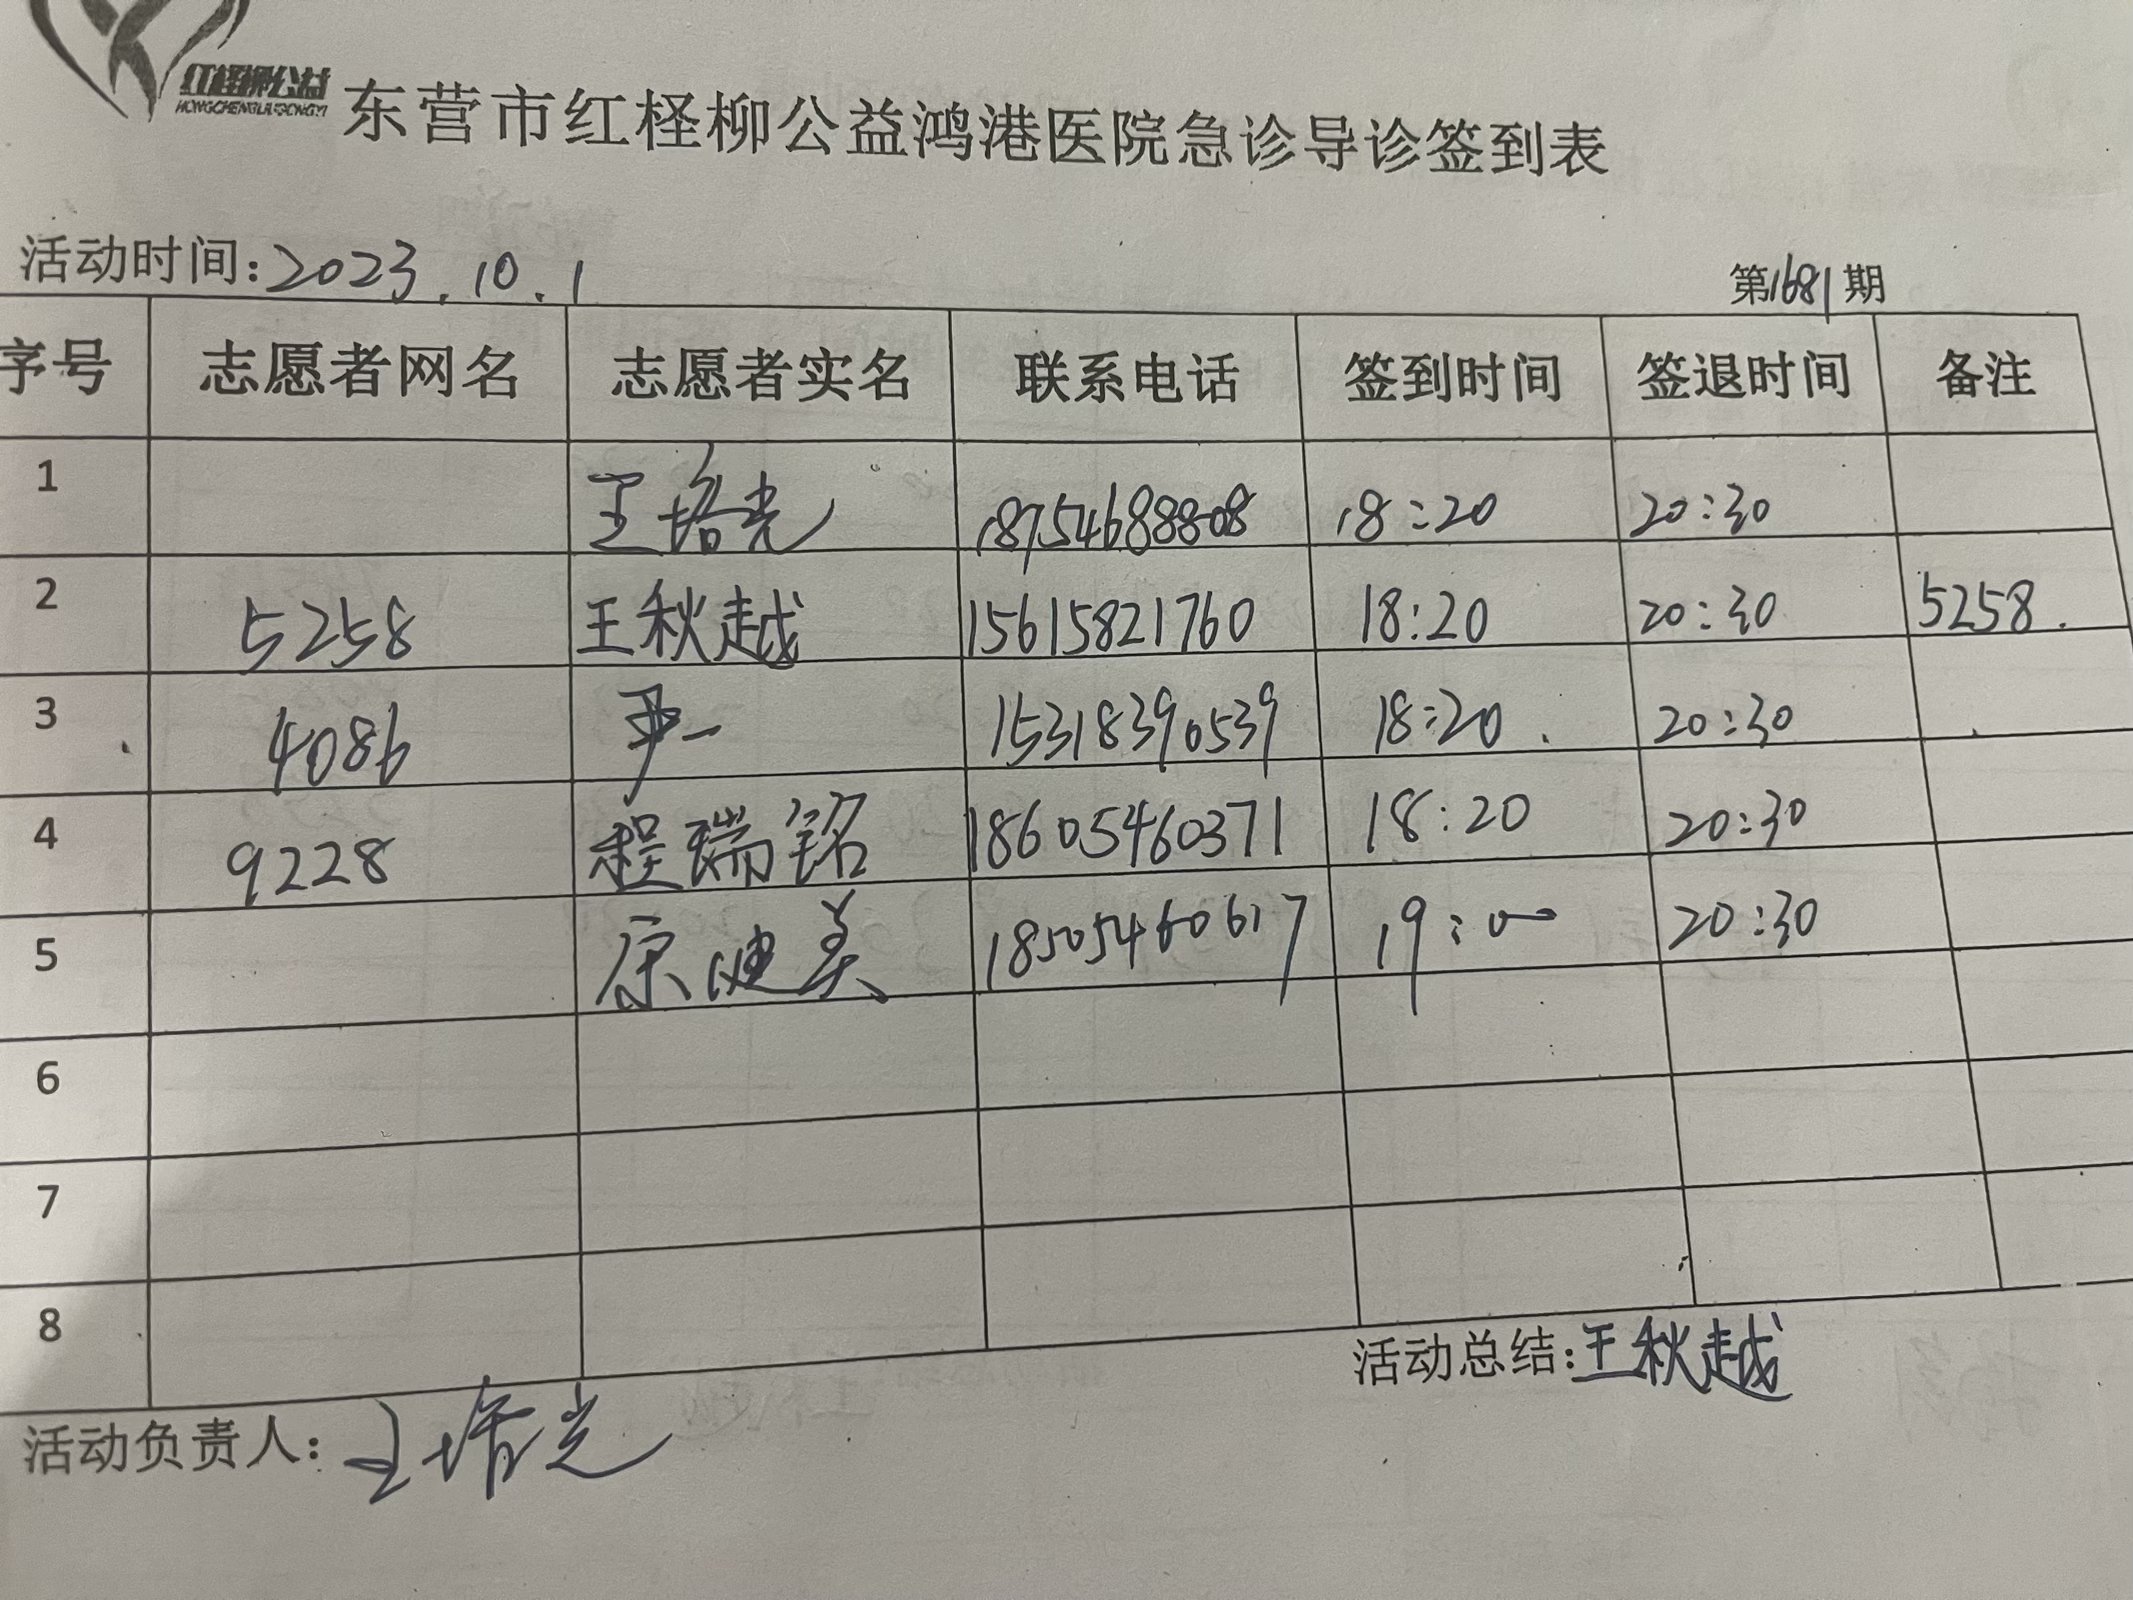 红柽柳公益
HONGCHENGLIUGONGYI
东营市红柽柳公益鸿港医院急诊导诊签到表
活动时间:2023.10.1
第1681期
序号 志愿者网名 志愿者实名 联系电话 签到时间 签退时间 备注
1 王培光 18754688808 18:20 20:30
2 5258 王秋越 15615821760 18:20 20:30 5258.
3 4086 尹一 15318390539 18:20. 20:30
4 9228 程瑞铭 18605460371 18:20 20:30
5 康健美 18505460617 19:00 20:30
6
7
8
活动总结:王秋越
活动负责人:王培光